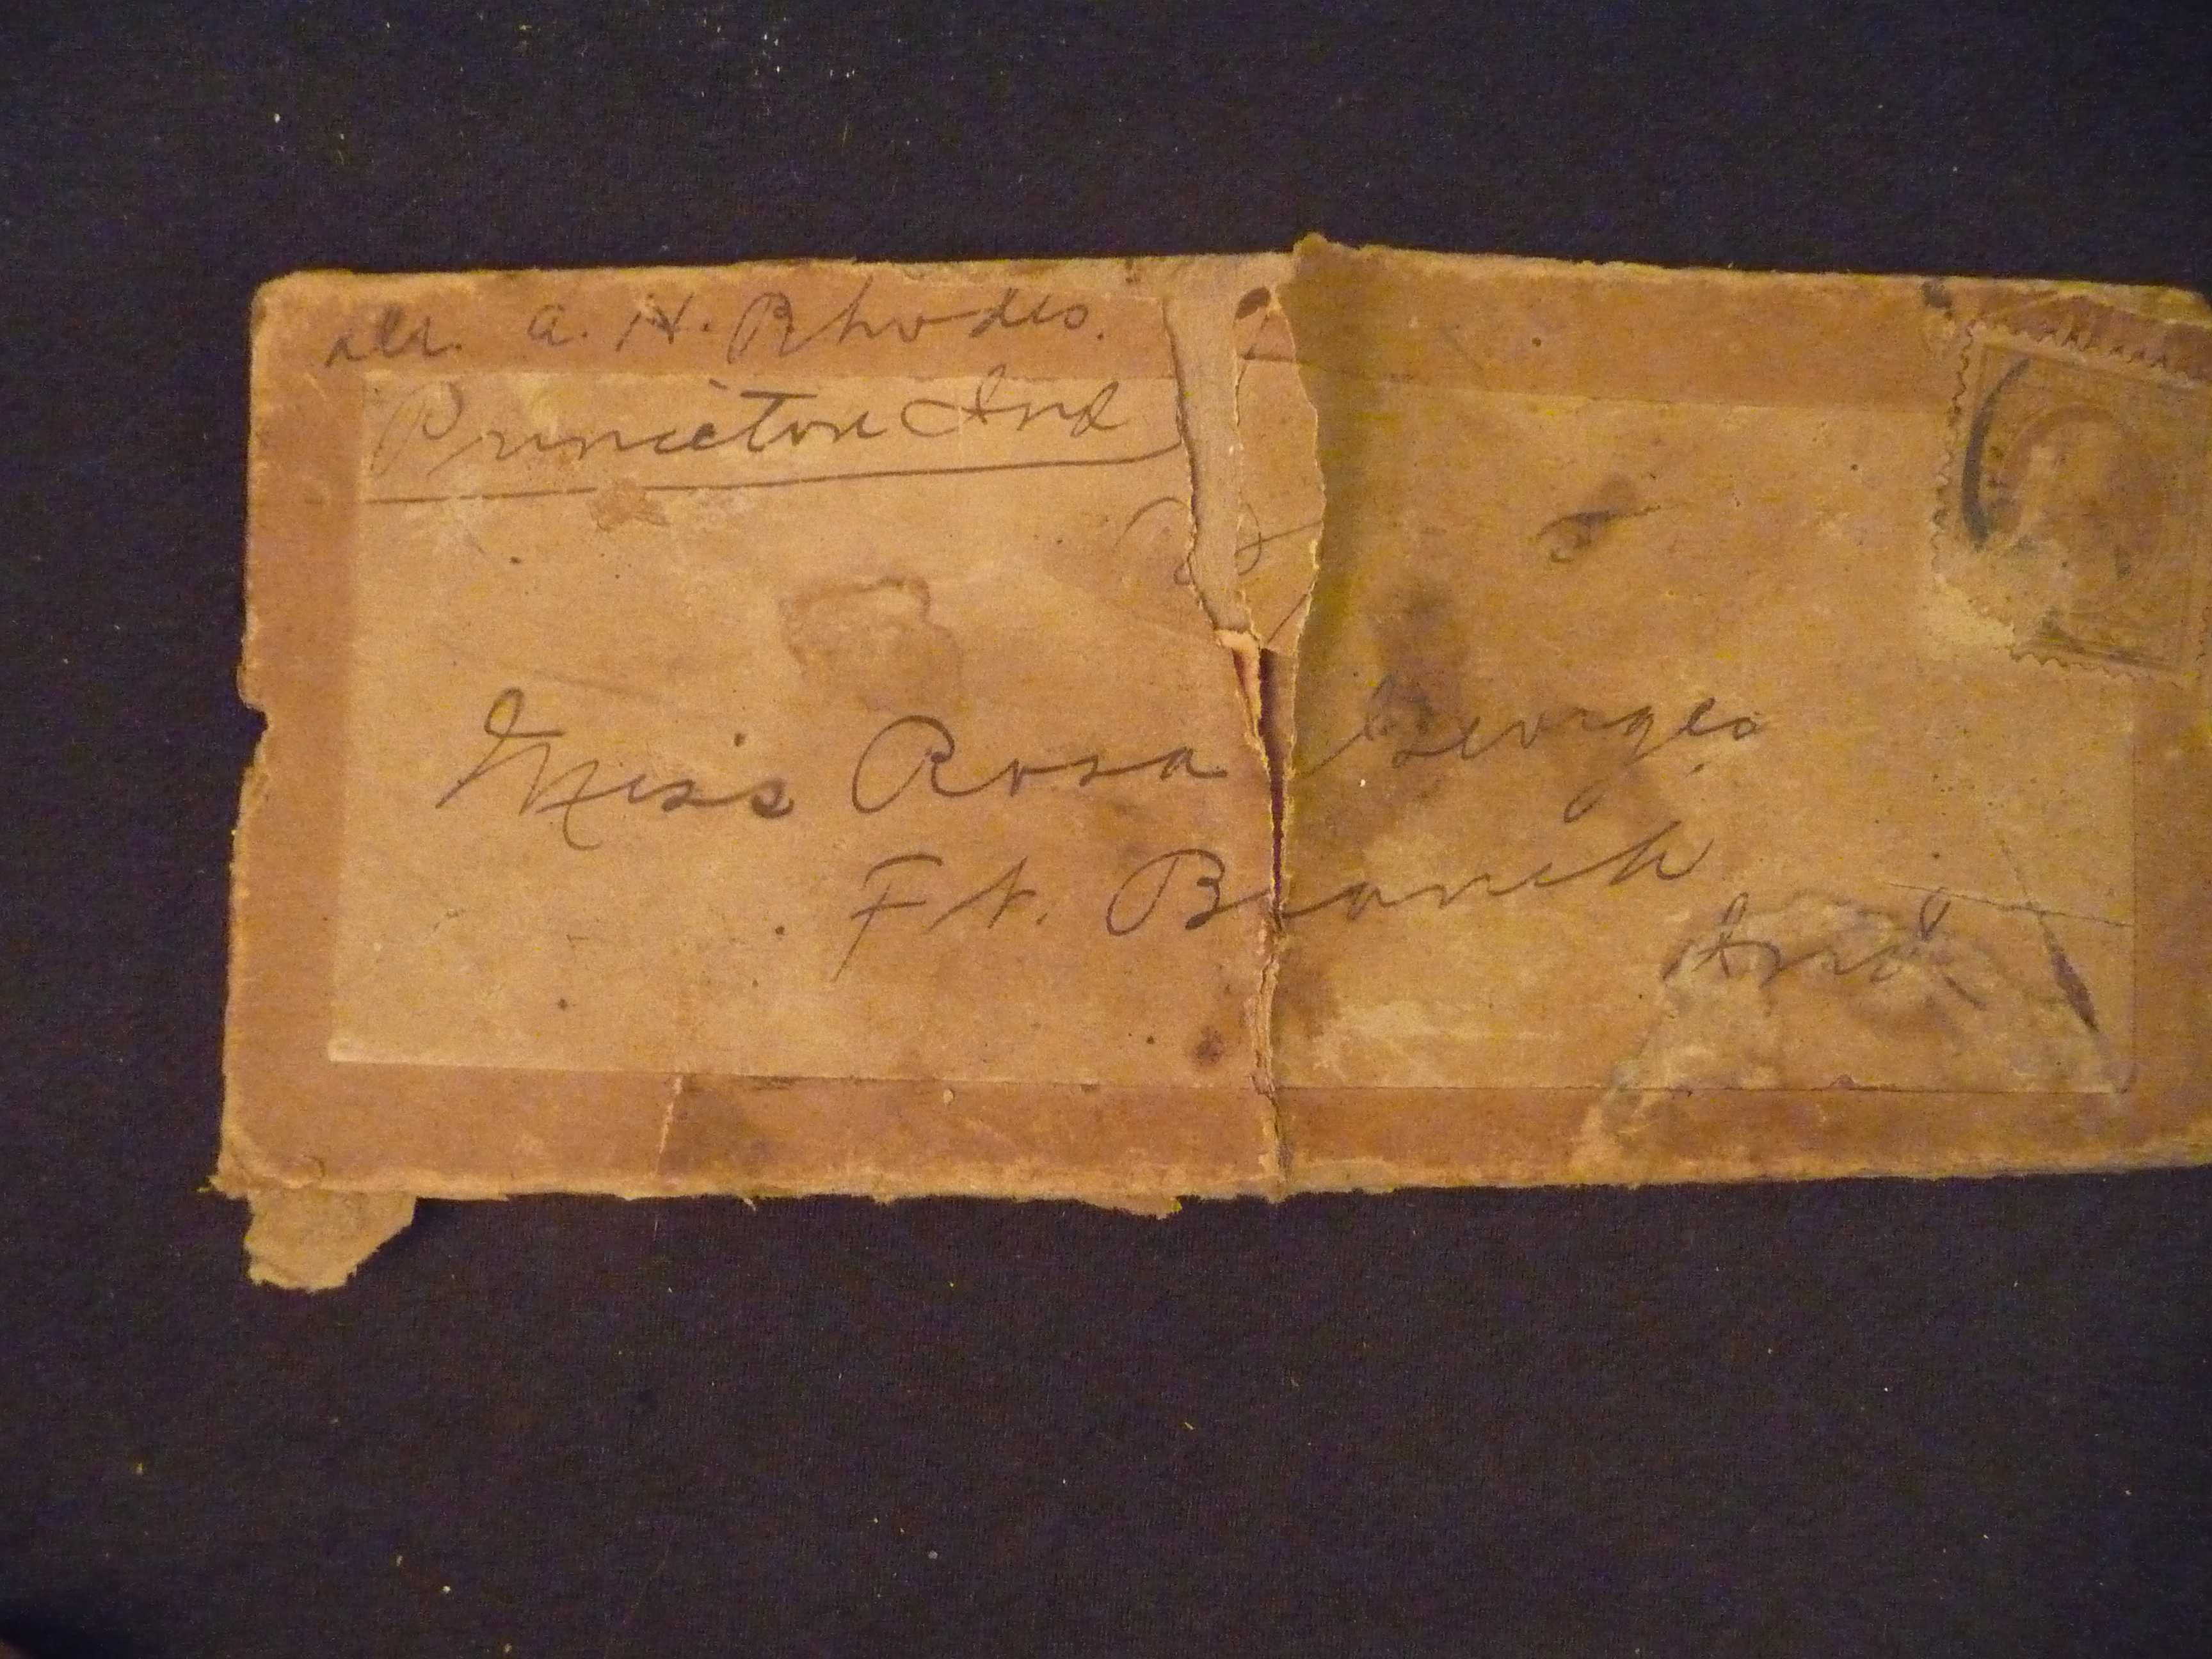 A. H. Rhodes.
Princeton Ind
Miss Rosa Georges
Ft. Branch
Ind